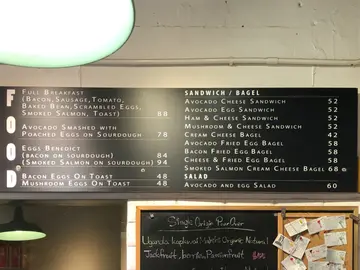 FOOD
Full Breakfast
(Bacon, Sausage, Tomato,
Baked Bean, Scrambled Egg,
Smoked Salmon, Toast) 88
Avocado Smashed with
Poached Eggs on Sourdough 78
Eggs Benedict
(bacon on sourdough) 84
(Smoked Salmon on sourdough) 94
Bacon Eggs On Toast 48
Mushroom Eggs On Toast 48
SANDWICH / BAGEL
Avocado Cheese Sandwich 52
Avocado Egg Sandwich 52
Ham & Cheese Sandwich 52
Mushroom & Cheese Sandwich 52
Cream Cheese Bagel 42
Avocado Fried Egg Bagel 58
Bacon Fried Egg Bagel 58
Cheese & Fried Egg Bagel 58
Smoked Salmon Cream Cheese Bagel 68
SALAD
Avocado and egg Salad 60
Single Origin Pour Over
Uganda Organic Natural
Jackfruit, berries, Passionfruit